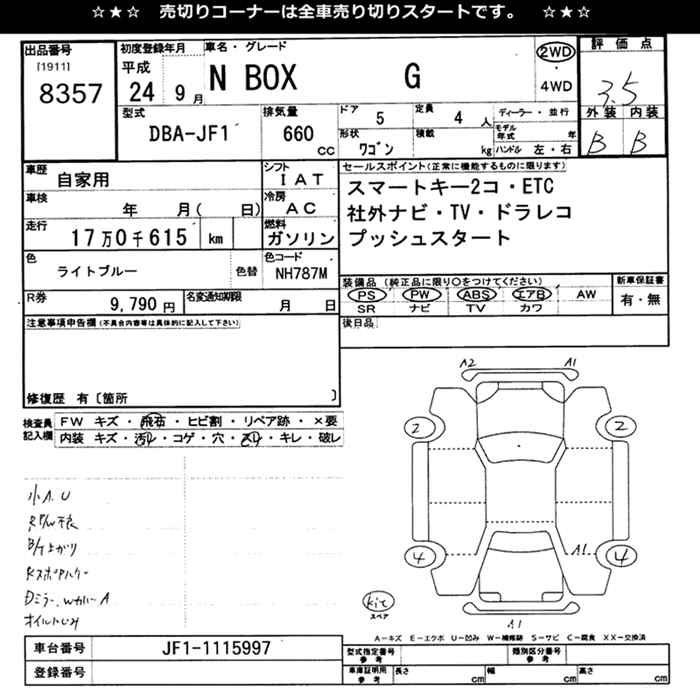 ☆★☆ 売切りコーナーは全車売り切りスタートです。 ☆★☆
出品番号 [1911] 8357
初度登録年月 平成 24 9 月
車名・グレード N BOX G
2WD ・ 4WD
評価点 3.5
外装 内装 B B
型式 DBA-JF1
排気量 660 cc
ドア 5
定員 4 人
ディーラー・並行
形状 ワゴン
積載 kg
モデル年式 年
ハンドル 左・右
車歴 自家用
シフト IAT
車検 年 月( 日)
冷房 AC
走行 17万0千615 km
燃料 ガソリン
色 ライトブルー 色替
色コード NH787M
R券 9,790 円
名変通知期限 月 日
セールスポイント(正常に機能するものに限ります)
スマートキー2コ・ETC
社外ナビ・TV・ドラレコ
プッシュスタート
装備品 (純正品に限り○をつけてください)
PS PW ABS エアB AW
SR ナビ TV カワ
新車保証書 有・無
後日品
注意事項申告欄(不具合内容等は具体的に記入して下さい)
修復歴 有〔箇所 〕
検査員記入欄
FW キズ・飛石・ヒビ割・リペア跡・×要
内装 キズ・汚レ・コゲ・穴・スレ・キレ・破レ
小A.U
B/T上がり
Dミラー、Wカバー A
オイルにじみ
A2 A1
2 2
A1
4 4
kit
スペア
A1
A-キズ E-エクボ U-凹み W-補修跡 S-サビ C-腐食 XX-交換済
車台番号 JF1-1115997
登録番号
型式指定番号 参考
類別区分番号 参考
車庫証明用 参考 長さ cm 幅 cm 高さ cm